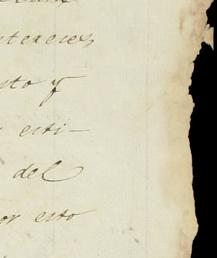 intereses,
sto y
esti-
del
or esto